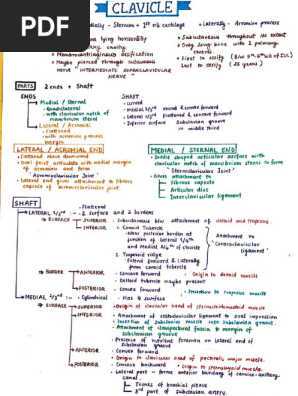 PDF
CLAVICLE
Medially - Sternum + 1st rib cartilage
Laterally - Acromion process
lying horizontally
Subcutaneous throughout its extent
cavity
Only long bone with 2 primary
centres.
Membranocartilaginous ossification
First to ossify
Maybe pierced through cutaneous
Last to ossify (25 years)
nerve "INTERMEDIATE SUPRACLAVICULAR
NERVE"
PARTS 2 ends + Shaft
ENDS
SHAFT
Medial / Sternal
- Curved
- Quadrilateral
- Medial 2/3rd round & convex forward
- with clavicular notch of
- Lateral 1/3rd flattened & concave forward
manubrium sterni
- Inferior surface Subclavian groove
Lateral / Acromial
in middle third
- Flattened
- with acromion process
margin
LATERAL / ACROMIAL END
MEDIAL / STERNAL END
Flattened above downward
Saddle shaped articular surface with
Oval facet articulate with medial margin
clavicular notch of manubrium sterni to form
of acromion and form
Sternoclavicular Joint
Acromioclavicular Joint
Gives attachment to
Lateral end gives attachment to fibrous
Fibrous capsule
capsule of acromioclavicular joint.
Articular disc
Interclavicular ligament
SHAFT
- Flattened
LATERAL 1/3rd - 2 surface and 2 borders
SURFACE SUPERIOR - Subcutaneous b/w attachment of deltoid and trapezius
INFERIOR 1. Conoid Tubercle
- Near posterior border at
junction of lateral 1/4th
and Medial 3/4th of clavicle
Attachment to
"Coracoclavicular
ligament"
2. Trapezoid ridge
- Extend forward & laterally
from conoid tubercle
BORDER ANTERIOR - Concave forward
Origin to deltoid muscle
- Deltoid tubercle maybe present
POSTERIOR - Convex forward
Insertion to trapezius muscle
MEDIAL 2/3rd - Cylindrical - Has 4 surface
SURFACE SUPERIOR - Origin to clavicular head of sternocleidomastoid muscle
INFERIOR - Attachment of costoclavicular ligament to oval impression
- Insertion of subclavius muscle into Subclavian groove.
- Attachment of clavipectoral fascia, to margin of
subclavian groove
- Presence of nutrient foramen on lateral end of
Subclavian groove
ANTERIOR - Convex forward
- Origin to clavicular head of pectoralis major muscle.
POSTERIOR - Concave backward
Origin to sternohyoid muscle.
- Lateral part - forms anterior boundary of cervico-axillary
canal
Trunks of brachial plexus
3rd part of subclavian artery.